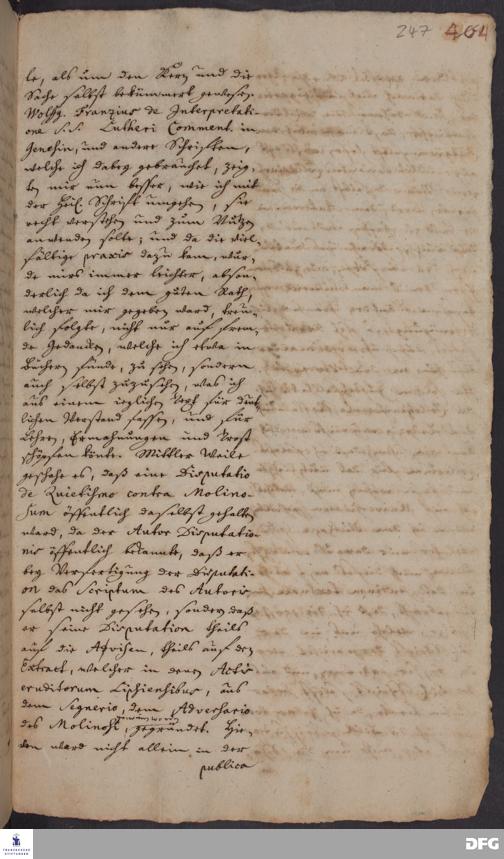 247 404
le, als um den Kern und die
Sache selbst bekümmert gewesen.
Wolffg. Franzius de Interpretati-
one S. S. Lutheri Comment. in
Genesin, und andere Schrifften,
welche ich dabey gebrauchet, zeig-
ten mir nun besser, wie ich mit
der Heil. Schrift umgehen, sie
recht verstehen und zum Nutzen
anwenden solte; und da die viel-
fältige praxis dazu kam, wur-
de mirs immer leichter, abson-
derlich da ich dem guten Rath,
welcher mir gegeben ward, treu-
lich folgte, nicht nur auf frem-
de Gedancken, welche ich etwa in
Büchern fünde, zu sehen, sondern
auch selbst zuzusehen, was ich
aus einem ieglichen Text für
lichen Verstand fassen, und für
Lehren, Ermahnungen und Trost
schöpfen könte. Mittler Weile
geschahe es, daß eine Disputatio
de Quietismo contra Molino-
sum öffentlich daselbst gehalten
ward, da der Autor Disputatio-
nis öffentlich bekannte, daß er
bey Verfertigung der Disputati-
on das Scriptum des Autoris
selbst nicht gesehen, sondern daß
er seine Disputation theils
auf die Advisen, theils auf den
Extract, welcher in denen Actis
eruditorum Lipsiensibus, aus
dem Segnerio, dem Adversario
des Molinos, gegründet. Hie-
von ward nicht allein in der
publica
FRANCKESCHE STIFTUNGEN
DFG